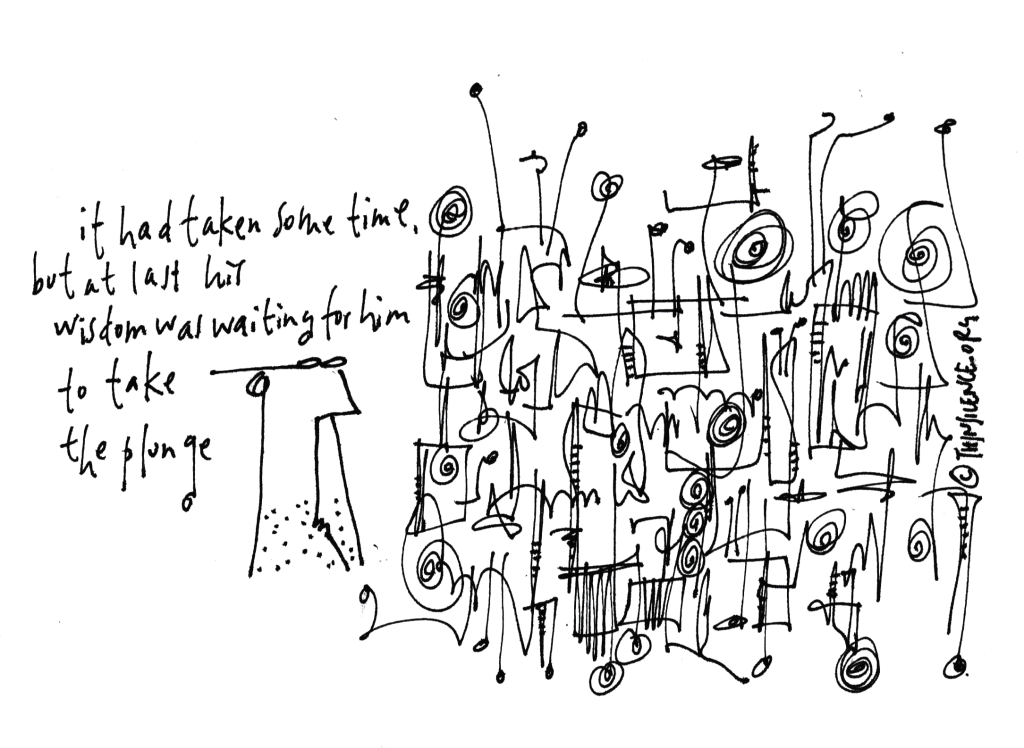 it had taken some time,
but at last his
wisdom was waiting for him
to take
the plunge
© THINSILENCE.ORG